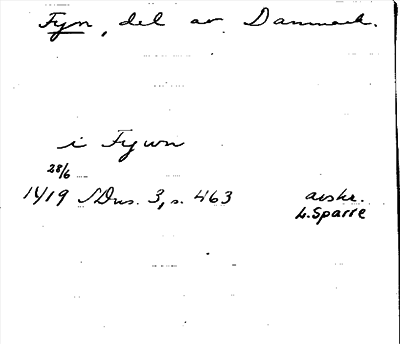 Fyn, del av Danmark.
i Fywn
28/6
1419 SDns. 3, s. 463 avskr.
L. Sparre